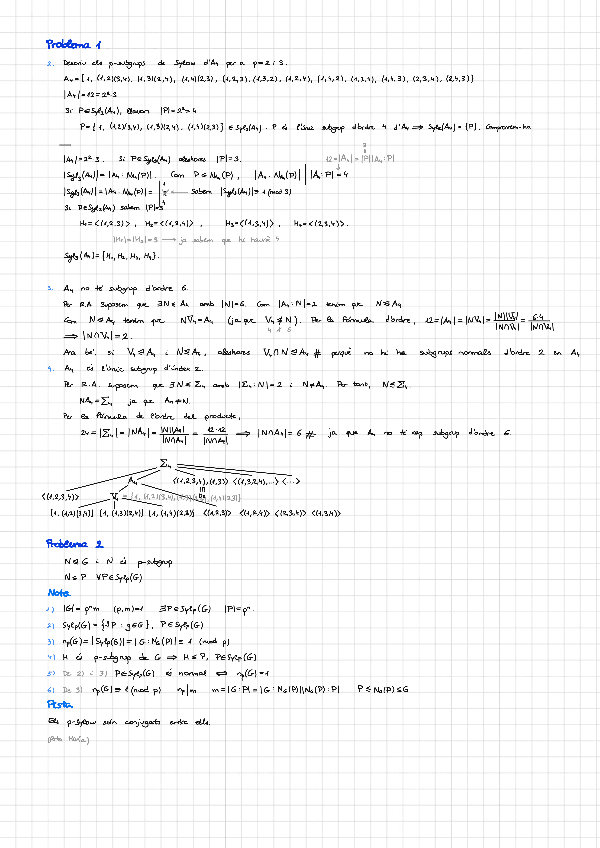 Problema 1
2. Descriu els p-subgrups de Sylow d'A₄ per a p=2 i 3.
A₄ = {1, (1,2)(3,4), (1,3)(2,4), (1,4)(2,3), (1,2,3), (1,3,2), (1,2,4), (1,4,2), (1,3,4), (1,4,3), (2,3,4), (2,4,3)}
|A₄| = 12 = 2²·3
Si P∈Syl₂(A₄), llavors |P| = 2² = 4
P = {1, (1,2)(3,4), (1,3)(2,4), (1,4)(2,3)} ∈ Syl₂(A₄). P és l'únic subgrup d'ordre 4 d'A₄ ⟹ Syl₂(A₄) = {P}.
|A₄| = 2²·3. Si P∈Syl₃(A₄) aleshores |P| = 3. 12 = |A₄| = |P||A₄:P|
|Syl₃(A₄)| = |A₄ : N_A₄(P)|. Com P ≤ N_A₄(P), |A₄ : N_A₄(P)| | |A₄:P| = 4
|Syl₃(A₄)| = |A₄ : N_A₄(P)| = 1 2 4 ← Sabem |Syl₃(A₄)| ≡ 1 (mod 3)
Si P∈Syl₃(A₄) sabem |P|=3
H₁ = <(1,2,3)>, H₂ = <(1,2,4)>, H₃ = <(1,3,4)>, H₄ = <(2,3,4)>.
|H₁| = |H₂| = 3 → ja sabem que hi haurà 4
Syl₃(A₄) = {H₁, H₂, H₃, H₄}.
3. A₄ no té subgrup d'ordre 6.
Per R.A. suposem que ∃N≤A₄ amb |N|=6. Com |A₄:N|=2 tenim que N⊴A₄
Com N⊴A₄ tenim que NV₄=A₄ (ja que V₄≰N). Per la fórmula d'ordre, 12 = |A₄| = |NV₄| = |N||V₄| / |N∩V₄| = 6·4 / |N∩V₄|
4 ∤ 6
⟹ |N∩V₄| = 2.
Ara bé, si V₄⊴A₄ i N⊴A₄, aleshores V₄∩N⊴A₄ # perquè no hi ha subgrups normals d'ordre 2 en A₄
4. A₄ és l'únic subgrup d'índex 2.
Per R.A. suposem que ∃N≤Σ₄ amb |Σ₄:N|=2 i N≠A₄. Per tant, N⊴Σ₄
NA₄=Σ₄ ja que A₄≠N.
Per la fórmula de l'ordre del producte,
24 = |Σ₄| = |NA₄| = |N||A₄| / |N∩A₄| = 12·12 / |N∩A₄| ⟹ |N∩A₄| = 6 # ja que A₄ no té cap subgrup d'ordre 6.
Σ₄
A₄ <(1,2,3,4),(1,3)> <(1,3,2,4),...> <...>
<(1,2,3,4)> V₄ = {1, (1,2)(3,4), (1,3)(2,4), (1,4)(2,3)}
{1, (1,2)(3,4)} {1, (1,3)(2,4)} {1, (1,4)(2,3)} <(1,2,3)> <(1,2,4)> <(2,3,4)> <(1,3,4)>
Problema 2
N⊴G i N és p-subgrup
N≤P ∀P∈Sylₚ(G)
Nota
1) |G| = pⁿm (p,m)=1 ∃P∈Sylₚ(G) |P|=pⁿ.
2) Sylₚ(G) = {ᵍP : g∈G}, P∈Sylₚ(G)
3) nₚ(G) = |Sylₚ(G)| = |G : N_G(P)| ≡ 1 (mod p)
4) H és p-subgrup de G ⟹ H≤P, P∈Sylₚ(G)
5) De 2) i 3) P∈Sylₚ(G) és normal ⟺ nₚ(G)=1
6) De 3) nₚ(G) ≡ 1 (mod p) nₚ|m m = |G:P| = |G:N_G(P)||N_G(P):P| P≤N_G(P)≤G
Pista
Els p-Sylow són conjugats entre ells.